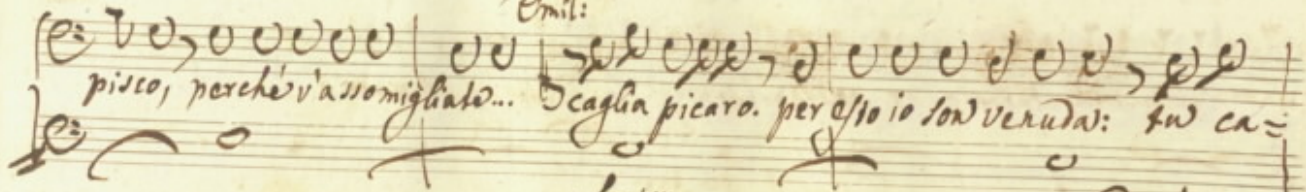 Emil:
pisco, perché v'assomigliate... Scaglia picaro. per esso io son venuda: tu ca=